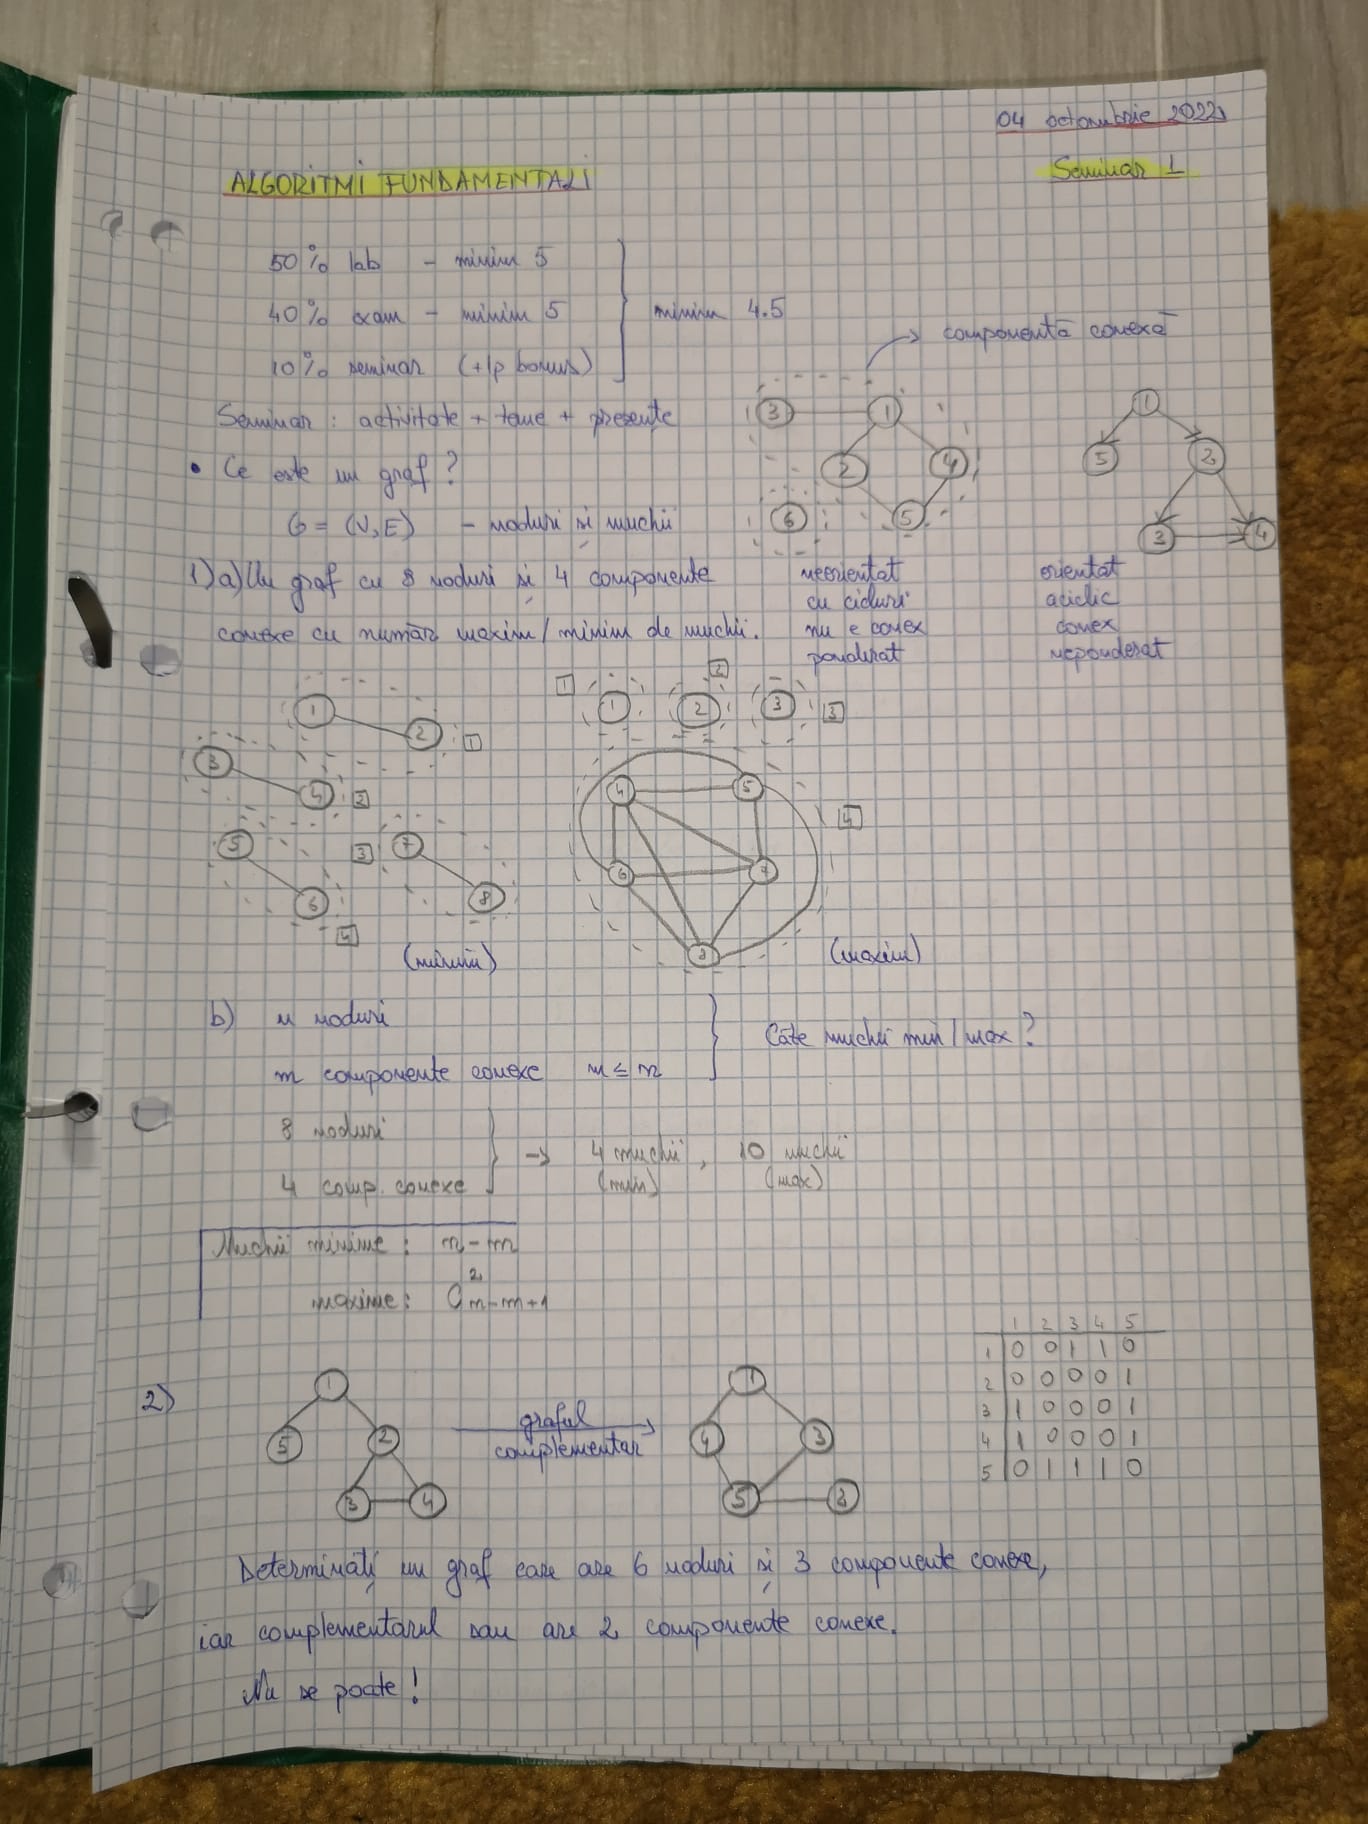 04 octombrie 2022
ALGORITMI FUNDAMENTALI
Seminar 1
50% lab - minim 5
40% exam - minim 5
10% seminar (+1p bonus)
minim 4.5
componentă conexă
Seminar : activitate + teme + prezente
• Ce este un graf ?
G = (V, E) - noduri și muchii
3 1 2 4 6 5
1 5 2 3 4
neorientat
cu cicluri
nu e conex
ponderat
orientat
aciclic
conex
neponderat
1) a) Un graf cu 8 noduri și 4 componente
conexe cu număr maxim / minim de muchii.
1 2 1
3 4 2
5 6 4
3 7 8
(minim)
1 1 2 2 3 3
4 5 4
6 7
8
(maxim)
b) n noduri
m componente conexe m ≤ n
Câte muchii min / max ?
8 noduri
4 comp. conexe
→ 4 muchii , 10 muchii
(min) (max)
Muchii minime : n - m
maxime : C²n-m+1
2)
1 5 2 3 4
graful
complementar
1 4 3 5 2
1 2 3 4 5
1 0 0 1 1 0
2 0 0 0 0 1
3 1 0 0 0 1
4 1 0 0 0 1
5 0 1 1 1 0
Determinați un graf care are 6 noduri și 3 componente conexe,
iar complementarul sau are 2 componente conexe.
Nu se poate !